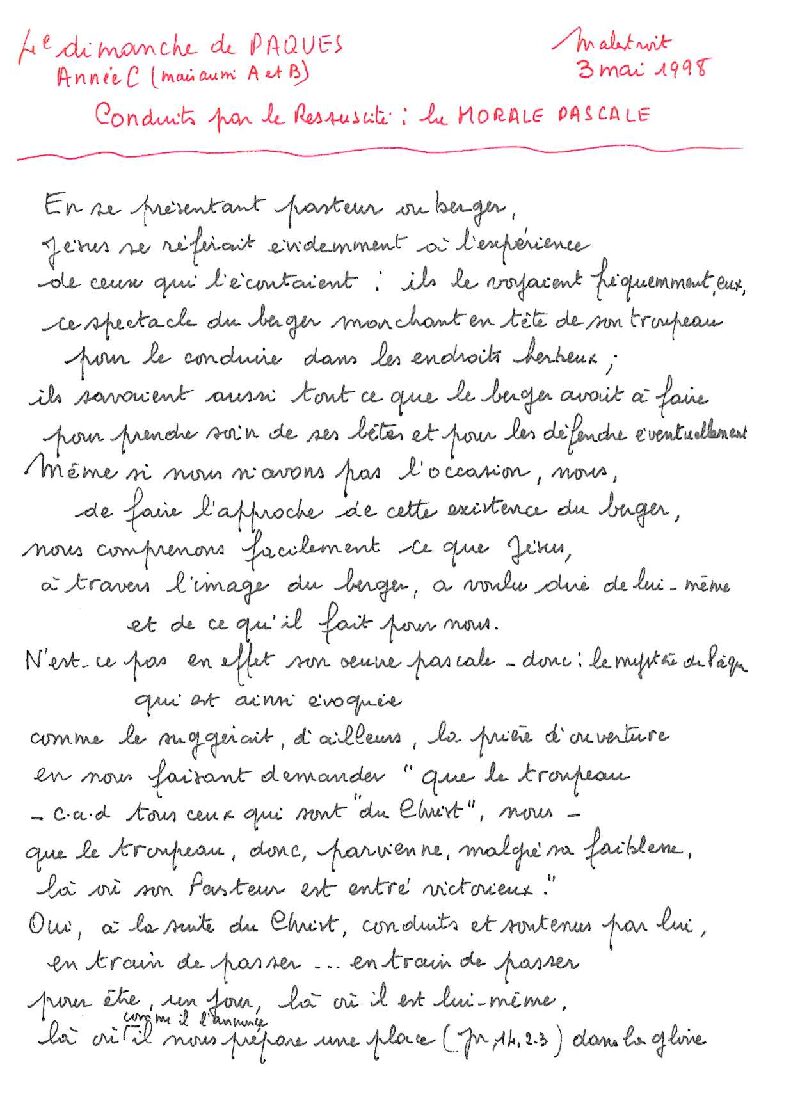 4e dimanche de PAQUES
Année C (mais aussi A et B)
Malestroit
3 mai 1998
Conduits par le Ressuscité : la MORALE PASCALE
En se présentant pasteur ou berger,
Jésus se référait évidemment à l'expérience
de ceux qui l'écoutaient : ils le voyaient fréquemment, eux,
ce spectacle du berger marchant en tête de son troupeau
pour le conduire dans les endroits herbeux ;
ils savaient aussi tout ce que le berger avait à faire
pour prendre soin de ses bêtes et pour les défendre éventuellement
Même si nous n'avons pas l'occasion, nous,
de faire l'approche de cette existence du berger,
nous comprenons facilement ce que Jésus,
à travers l'image du berger, a voulu dire de lui-même
et de ce qu'il fait pour nous.
N'est-ce pas en effet son oeuvre pascale - donc : le mystère de Pâques
qui est ainsi évoquée
comme le suggérait, d'ailleurs, la prière d'ouverture
en nous faisant demander "que le troupeau
- c.a.d tous ceux qui sont "du Christ", nous -
que le troupeau, donc, parvienne, malgré sa faiblesse,
là où son Pasteur est entré victorieux."
Oui, à la suite du Christ, conduits et soutenus par lui,
en train de passer ... en train de passer
pour être, un jour, là où il est lui-même,
comme il l'annonce
là où il nous prépare une place (Jn, 14, 2-3) dans la gloire